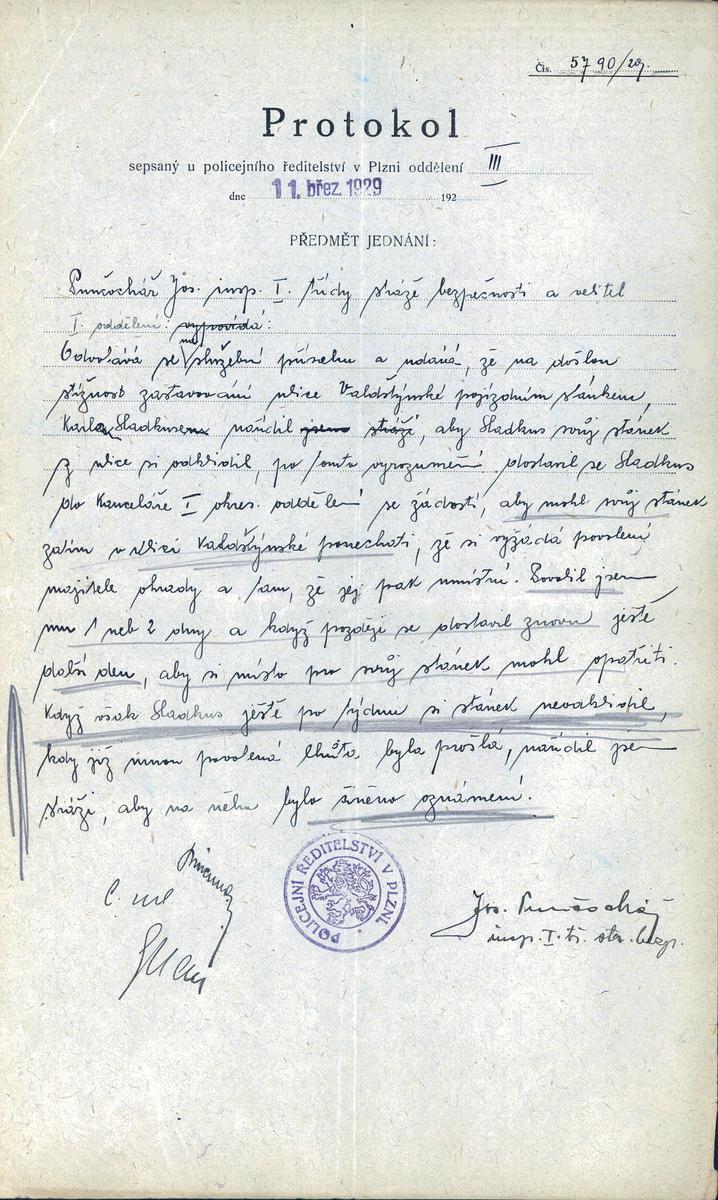 Čís. 5790/29.
Protokol
sepsaný u policejního ředitelství v Plzni oddělení III
dne 11. břez. 1929 192
PŘEDMĚT JEDNÁNÍ:
Punčochář Jos. insp. I. třídy stráže bezpečnosti a velitel
I. oddělení vypovídá:
Odvolává se na služební přísahu a udává, že na došlou
stížnost zastavování ulice Valdštýnské pojízdným stánkem,
Karla Sladkus nařídil jsem stráži, aby Sladkus svůj stánek
z ulice si odklidil, po tomto vyrozumění dostavil se Sladkus
do Kanceláře I okres. oddělení se žádostí, aby mohl svůj stánek
zatím v ulici Valdštýnské ponechati, že si vyžádá povolení
majitele ohrady a tam, že jej pak umístní. Povolil jsem
mu 1 neb 2 dny a když později se dostavil znovu ještě
další den, aby si místo pro svůj stánek mohl opatřiti.
Když však Sladkus ještě po týdnu si stánek neodklidil,
kdy již mnou povolená lhůta byla prošlá, nařídil jsem
stráži, aby na něho bylo učiněno oznámení.
POLICEJNÍ ŘEDITELSTVÍ V PLZNI.
Jos. Punčochář
insp. I. tř. str. bezp.